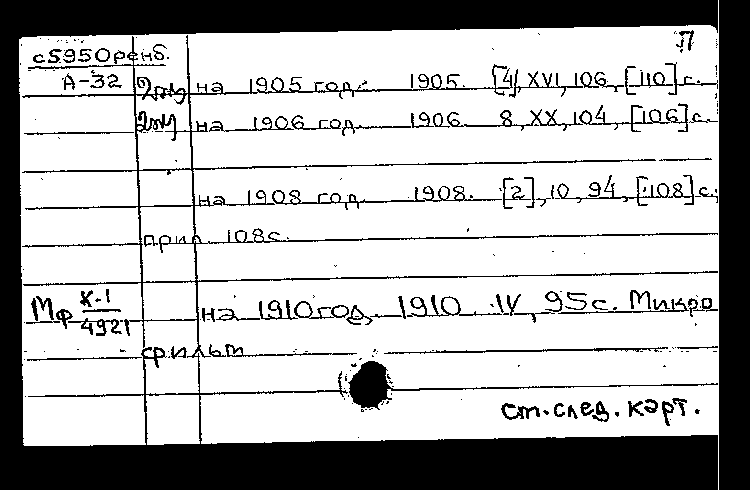 П
с595Оренб.
А-32 2экз на 1905 год. 1905. [4], XVI, 106, [110] с.
2экз на 1906 год. 1906. 8, XX, 104, [106] с.
на 1908 год. 1908. [2], 10, 94, [108] с;
прил. 108 с.
Мф К-1/4921 на 1910 год. 1910. IV, 95 с. Микро
фильм
См. след. карт.